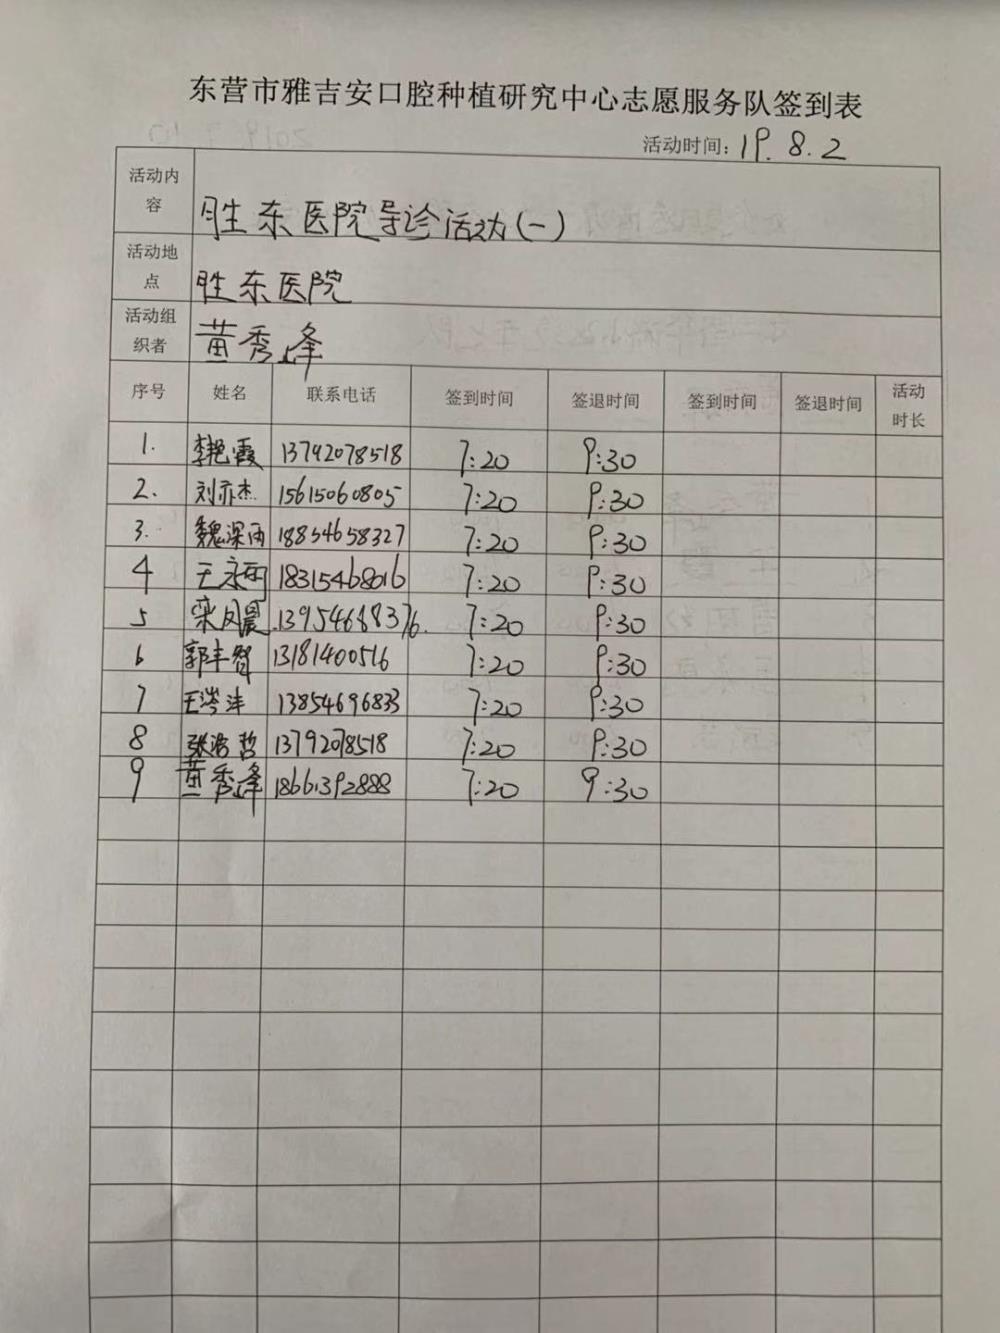 东营市雅吉安口腔种植研究中心志愿服务队签到表
活动时间: 19.8.2
活动内容 胜东医院导诊活动(一)
活动地点 胜东医院
活动组织者 黄秀峰
序号 姓名 联系电话 签到时间 签退时间 签到时间 签退时间 活动时长
1. 李艳霞 13792078518 7:20 9:30
2. 刘亦杰 15615060805 7:20 9:30
3. 魏深雨 18854658327 7:20 9:30
4 王永雨 18315468016 7:20 9:30
5 栾凤晨 13954688376. 7:20 9:30
6 郭丰智 13181400516 7:20 9:30
7 王岑沣 13854696833 7:20 9:30
8 张浩哲 13792078518 7:20 9:30
9 黄秀峰 18661392888 7:20 9:30